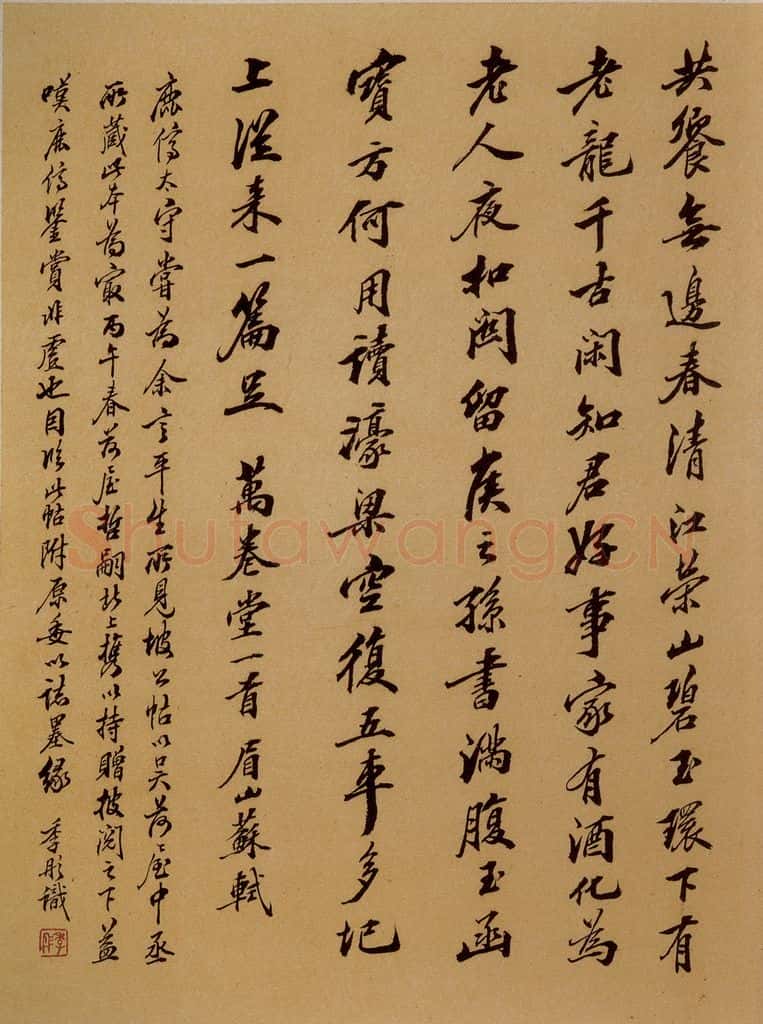 共饗無邊春清江縈山碧玉環下有
老龍千古閑知君好事家有酒化為
老人夜扣關留侯之孫書滿腹玉函
寶方何用讀濠梁空復五車多圯
上從來一篇足 萬卷堂一首 眉山蘇軾
鹿停太守嘗為余言平生所見坡公帖以吳荷屋中丞
所藏此本為最丙午春荷屋哲嗣北上攜以持贈披閱之下益
嘆鹿停鑒賞非虛也因臨此帖附原委以誌墨緣 季彤識
Shufawang.CN